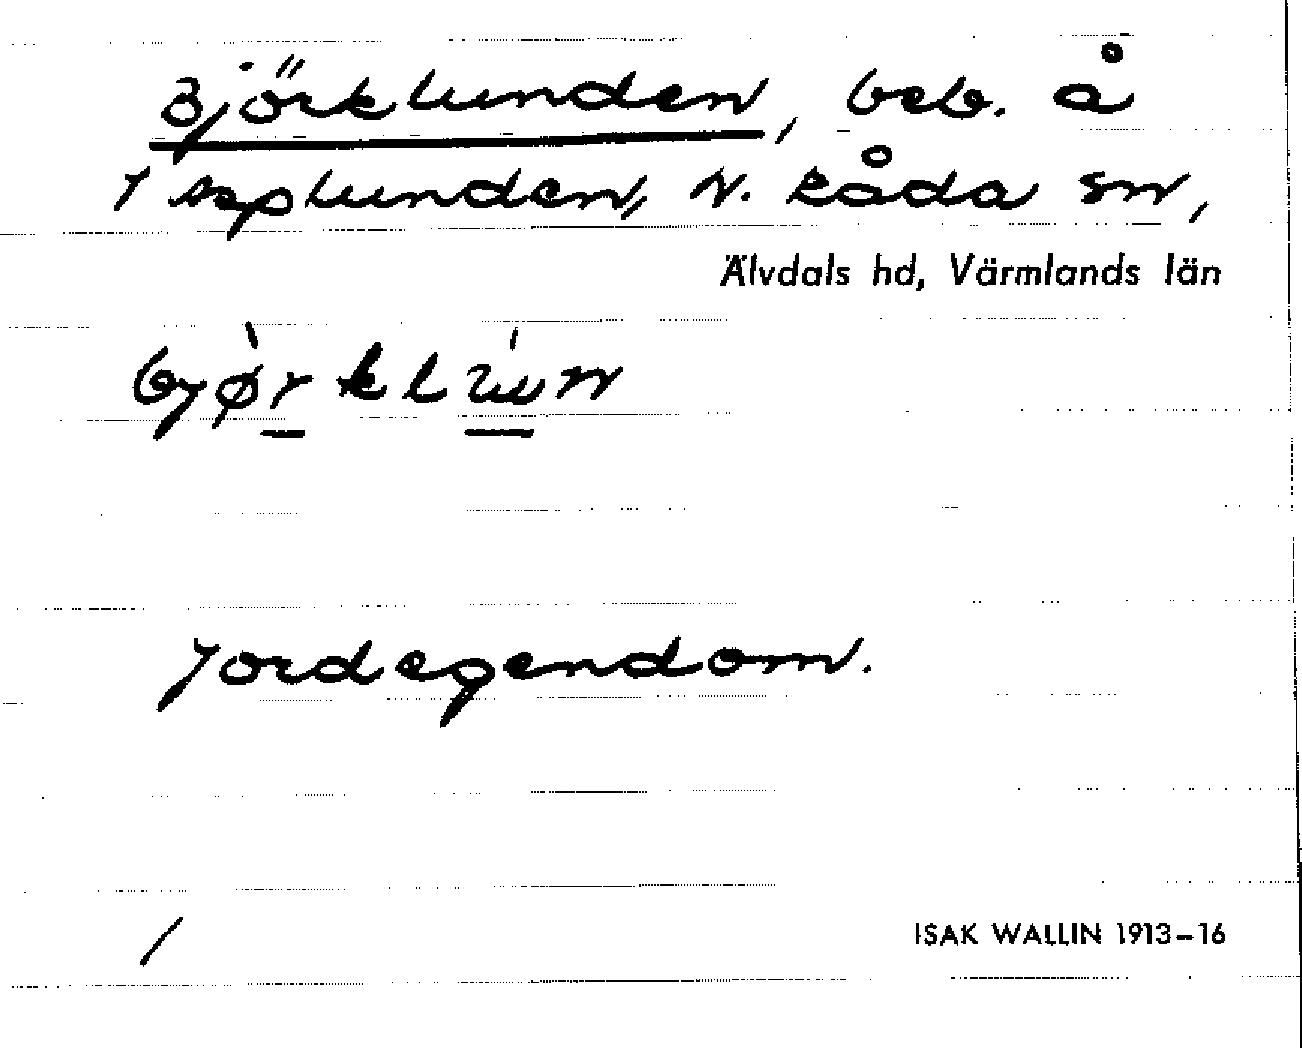 Björklunden, beb. å
1 Asplunden, N. Råda sn,
Älvdals hd, Värmlands län
bjø̀rklúnn
Jordegendom.
/
ISAK WALLIN 1913–16